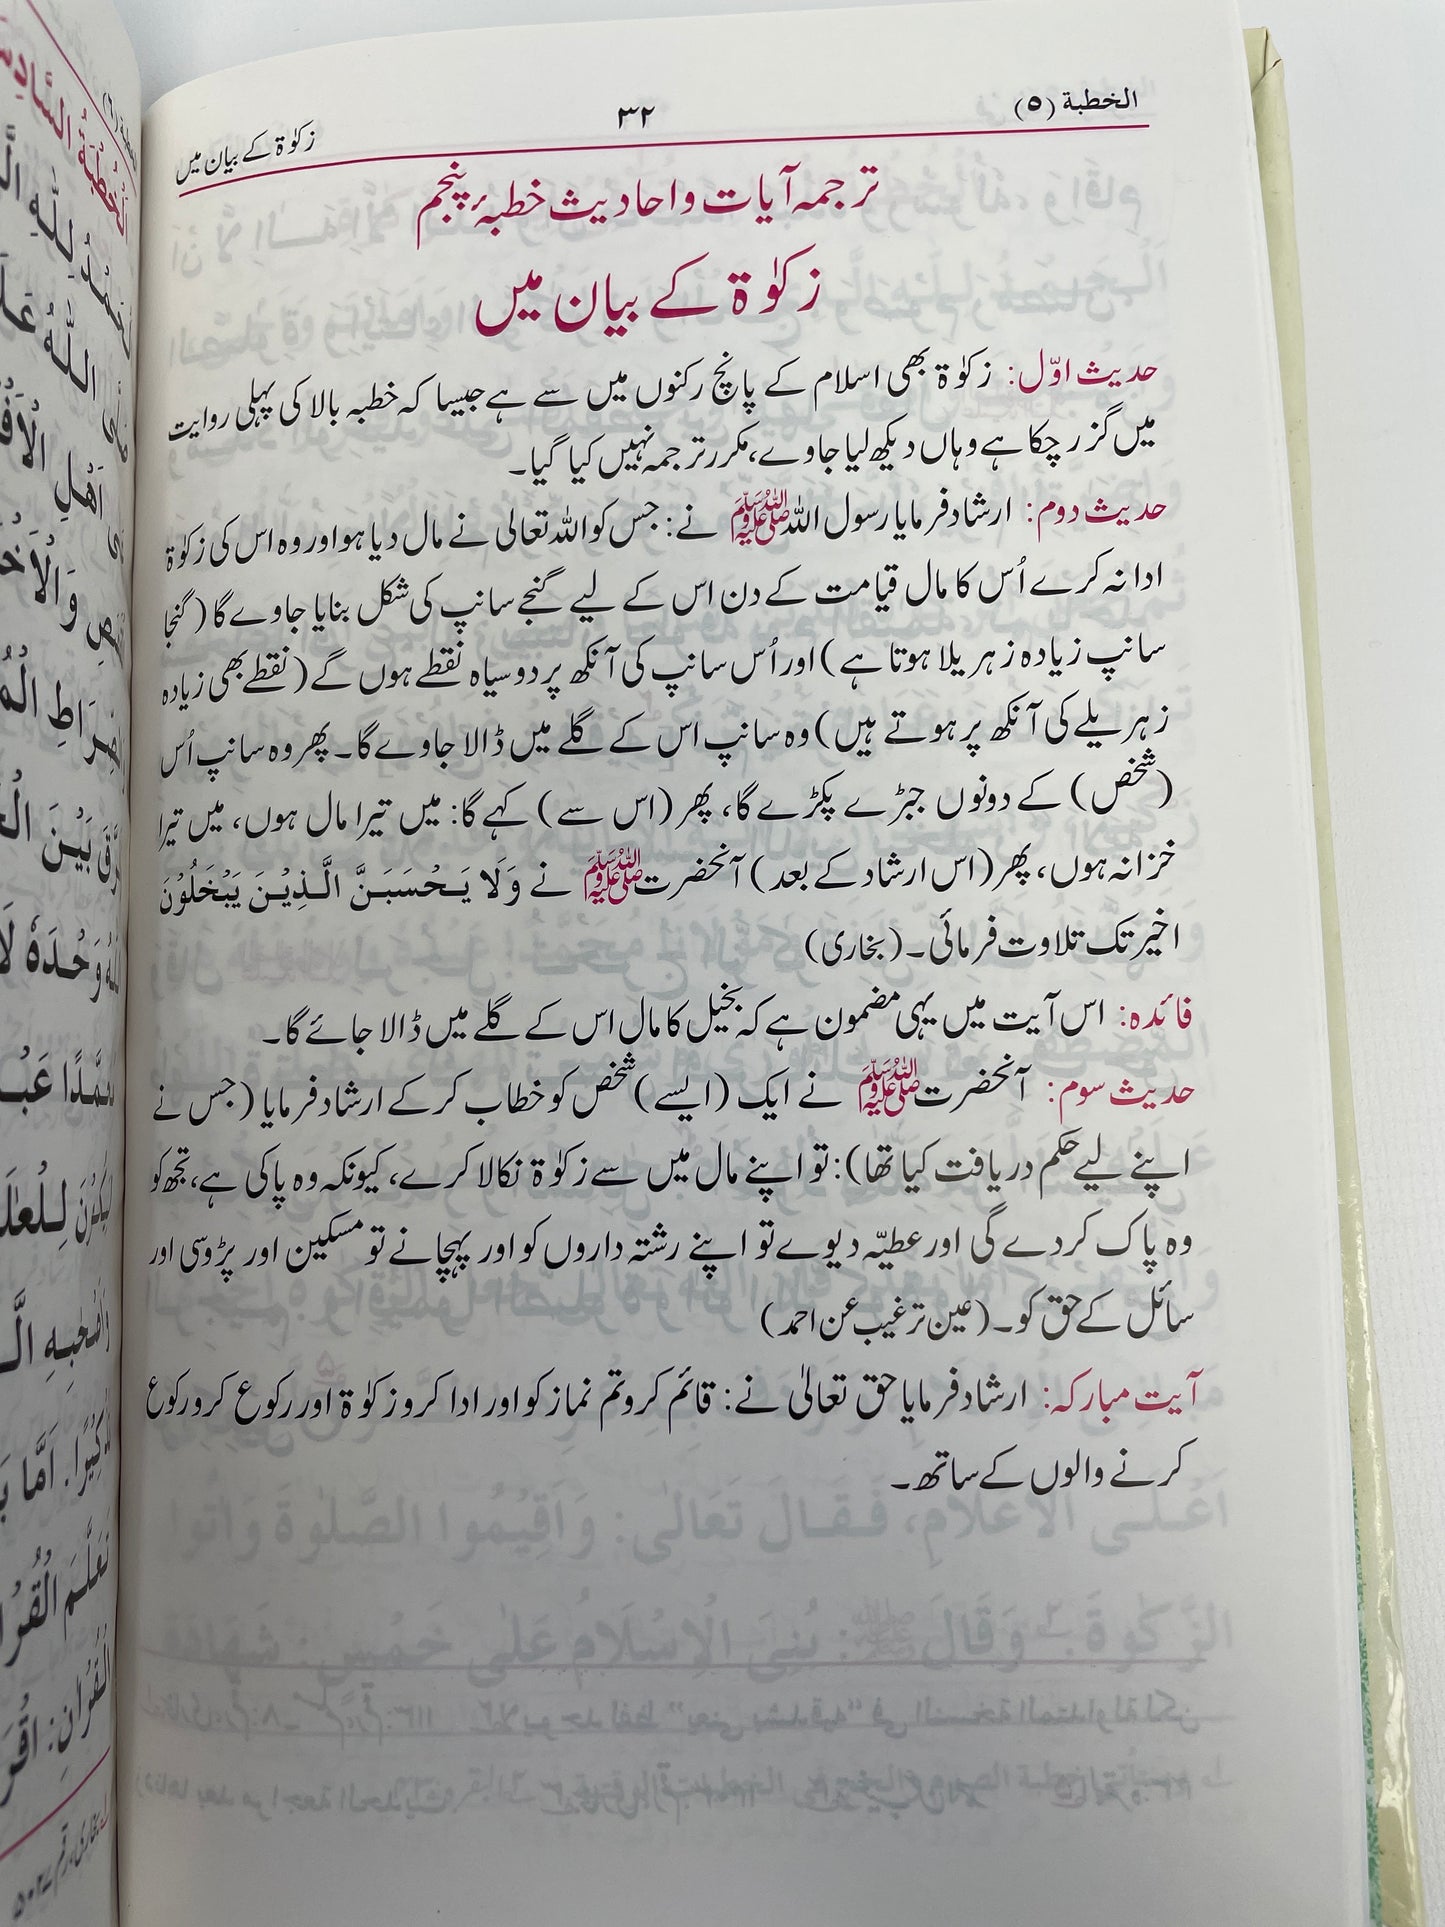 الخطبة (٥)
٣٢
زکوٰۃ کے بیان میں
ترجمہ آیات و احادیث خطبۂ پنجم
زکوٰۃ کے بیان میں
حدیث اوّل: زکوٰۃ بھی اسلام کے پانچ رکنوں میں سے ہے جیسا کہ خطبہ بالا کی پہلی روایت
میں گزر چکا ہے وہاں دیکھ لیا جاوے، مکرر ترجمہ نہیں کیا گیا۔
حدیث دوم: ارشاد فرمایا رسول اللہ ﷺ نے: جس کو اللہ تعالی نے مال دیا ہو اور وہ اس کی زکوٰۃ
ادا نہ کرے اُس کا مال قیامت کے دن اس کے لیے گنجے سانپ کی شکل بنایا جاوے گا (گنجا
سانپ زیادہ زہریلا ہوتا ہے) اور اُس سانپ کی آنکھ پر دو سیاہ نقطے ہوں گے (نقطے بھی زیادہ
زہریلے کی آنکھ پر ہوتے ہیں) وہ سانپ اس کے گلے میں ڈالا جاوے گا۔ پھر وہ سانپ اُس
(شخص) کے دونوں جبڑے پکڑے گا، پھر (اس سے) کہے گا: میں تیرا مال ہوں، میں تیرا
خزانہ ہوں، پھر (اس ارشاد کے بعد) آنحضرت ﷺ نے وَلَا یَحْسَبَنَّ الَّذِیْنَ یَبْخَلُوْنَ
اخیر تک تلاوت فرمائی۔ (بخاری)
فائدہ: اس آیت میں یہی مضمون ہے کہ بخیل کا مال اس کے گلے میں ڈالا جائے گا۔
حدیث سوم: آنحضرت ﷺ نے ایک (ایسے) شخص کو خطاب کر کے ارشاد فرمایا (جس نے
اپنے لیے حکم دریافت کیا تھا): تو اپنے مال میں سے زکوٰۃ نکالا کرے، کیونکہ وہ پاکی ہے، تجھ کو
وہ پاک کر دے گی اور عطیّہ دیوے تو اپنے رشتہ داروں کو اور پہچانے تو مسکین اور پڑوسی اور
سائل کے حق کو۔ (عین ترغیب عن احمد)
آیت مبارکہ: ارشاد فرمایا حق تعالیٰ نے: قائم کرو تم نماز کو اور ادا کرو زکوٰۃ اور رکوع کرو رکوع
کرنے والوں کے ساتھ۔